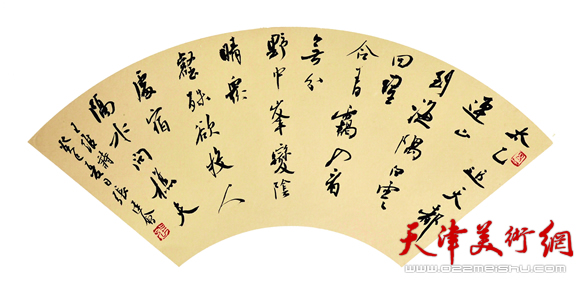 太乙近天都
連山
到海隅白雲
回望
合青靄入看
無分
野中峯變陰
晴衆
壑殊欲投人
處宿
隔水問樵夫
王維詩
癸巳夏日張
天津美術網
www.022meishu.com